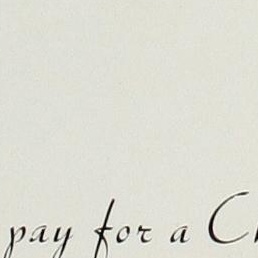 pay for a Ch